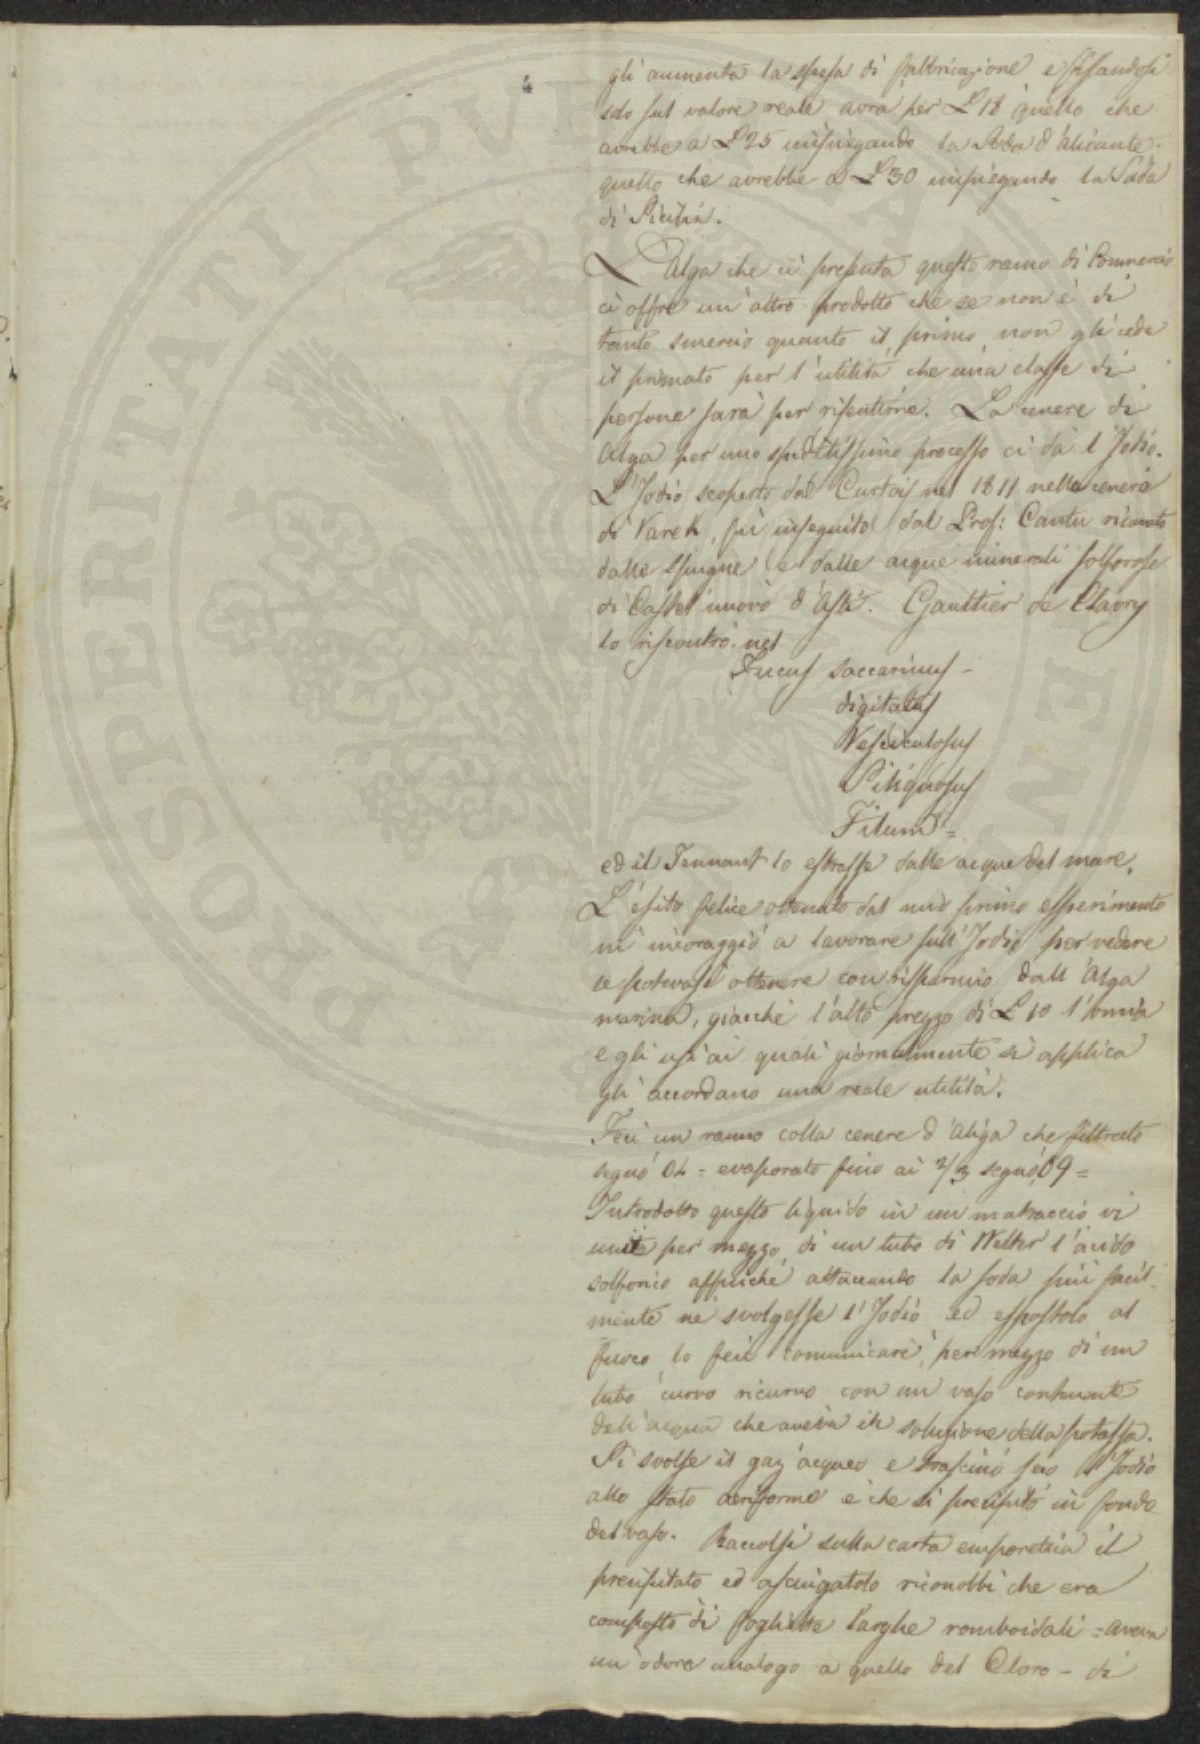 gli aumenta la spesa di fabbricazione e fissandosi
solo sul valore reale avrà per L 18 quello che
avrebbe a L 25 impiegando la Soda d'alicante.
quello che avrebbe a L 30 impiegando la Soda
di Sicilia.
L'Alga che ci presenta questo ramo di Commercio
ci offre un'altro prodotto che se non è di
tanto smercio quanto il primo, non gli cede
il primato per l'utilità che una classe di
persone sarà per risentirne. La cenere di
Alga per uno speditissimo processo ci dà l'Jodio.
L'Jodio scoperto dal Curtois nel 1811 nelle ceneri
di Varek, fu inseguito dal Prof: Cantu ricavato
dalle spugne e dalle acque minerali solforose
di Castel nuovo d'Asti. Gaultier de Claory
lo riscontrò nel
Fucus saccarinus -
digitatus
Vesiculosus
Siliquosus
Filum =
ed il Tennant lo estrasse dalle acque del mare.
L'esito felice ottenuto dal mio primo esperimento
m'incoraggiò a lavorare sull'Jodio per vedere
se potevasi ottenere con risparmio dall'Alga
marina, giacchè l'alto prezzo di L 10 l'oncia
e gli usi ai quali giornalmente si applica
gli accordano una reale utilità.
Feci un ranno colla cenere d'Aliga che filtrato
segnò 04 = evaporato fino ai 2/3 segnò 09 =
Introdotto questo liquido in un matraccio vi
unii per mezzo di un tubo di Welter l'acido
solforico affinchè attaccando la soda più facil-
mente ne svolgesse l'Jodio ed espostolo al
fuoco lo feci comunicare per mezzo di un
tubo curvo ricurvo con un vaso contenente
dell'acqua che aveva in soluzione della potassa.
Si svolse il gaz acqueo e trascinò seco l'Jodio
allo stato aeriforme e che si precipitò in fondo
del vaso. Raccolsi sulla carta emporetica il
precipitato ed asciugatolo riconobbi che era
composto di fogliette larghe romboidali = aveva
un'odore analogo a quello del Cloro - di
PROSPERITATI PVBLICAE